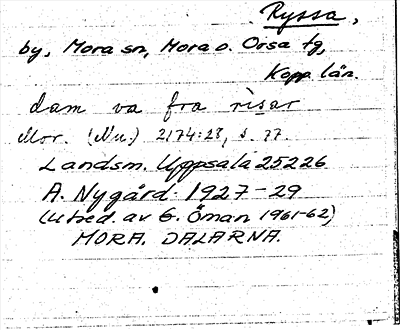 Ryssa,
by, Mora sn, Mora o. Orsa tg,
Kopp. län.
dam va fra risar
Mor. (Nu.) 2174:28, s. 77.
Landsm. Uppsala 25226
A. Nygård 1927-29
(Utred. av E. Öman 1961-62)
MORA. DALARNA.